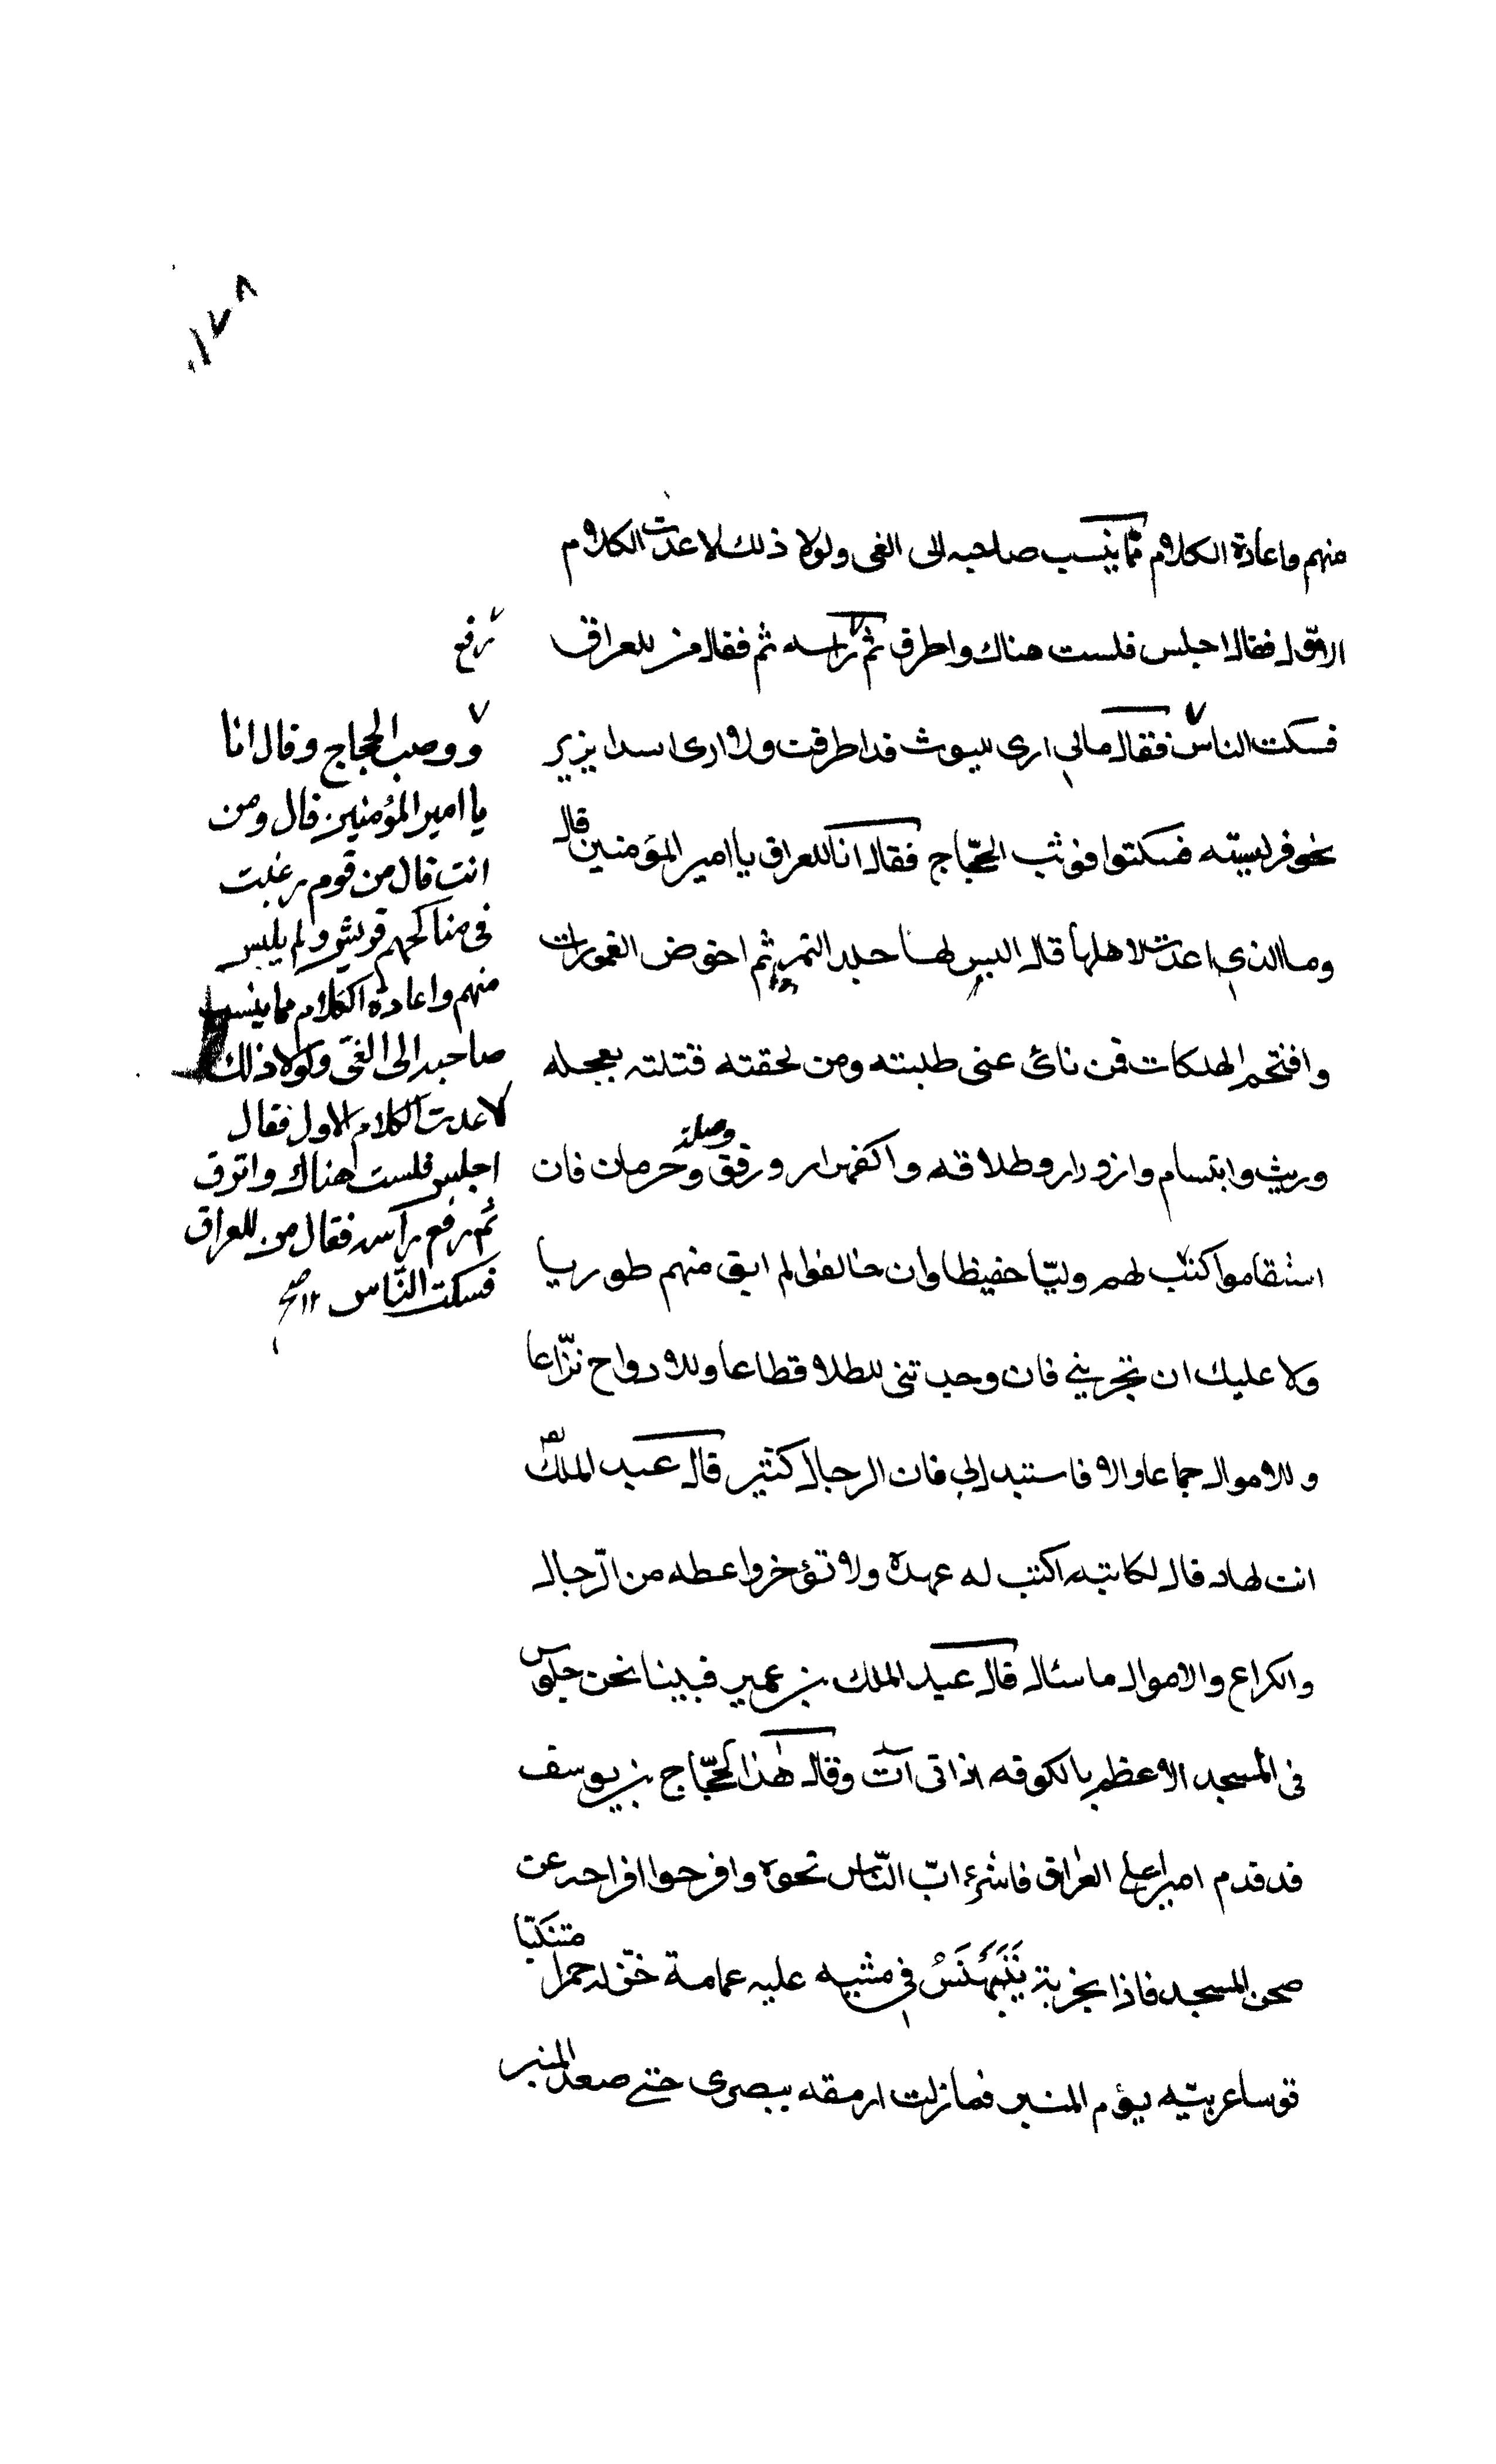 ١٧٨
منهم واعادة الكلام مما ينسب صاحبه الى الغى ولولا ذلك لاعدت الكلام
الاول فقال اجلس فلست هناك واطرق ثم راسه ثم فقال من للعراق
فسكت الناس فقال مالي ارى الليوث قد اطرقت ولا ارى اسدا يزير
نحو فريسته فسكتوا فوثب الحجّاج فقال انا للعراق يا امير المؤمنين قال
وما الذي اعددت لاهلها قال البس لهم جلد النمر ثم اخوض الغمرات
واقتحم الهلكات فمن نائ عنى طلبته ومن لحقته قتلته بعجله
وريث وابتسام وازورار وطلاقه واكفهرار ورفق وصلة وحرمان فان
استقاموا كنت لهم وليّا حفيظا وان خالفوا لم ابق منهم طوريا
ولا عليك ان تجربني فان وجدتنى للطلا قطاعا وللارواح نزّاعا
وللاموال جماعا والا فاستبدلي فان الرجال كثير قال عبد الملك
انت لها قال لكاتبه اكتب له عهده ولا تؤخر واعطه من الرّجال
والكراع والاموال ما سئال قال عبد الملك بن عمير فبينا نحن جلوس
فى المسجد الاعظم بالكوفه اذ اتى آت وقال هٰذا الحجّاج بن يوسف
قد قدم اميرا على العراق فاشرءابّ النّاس نحوه وافرجوا افراجه عن
صحن المسجد فاذا يتبهنس في مشيه عليه عمامة خزّ حمرا متنكبا
قوسا عربيّه يؤم المنبر فما زلت ارمقه ببصرى حتى صعد المنبر
رفع
ووصب الحجاج وقال انا
يا امير المؤمنين قال ومن
انت قال من قوم رغبت
فى مناكحهم قريش ولم يلبس
منهم واعادة الكلام مما ينسب
صاحبه الى الغىّ ولولا ذلك
لاعدت الكلام الاول فقال
اجلس فلست هناك واترق
ثم رفع رأسه فقال من للعراق
فسكت النّاس ١٢ صح